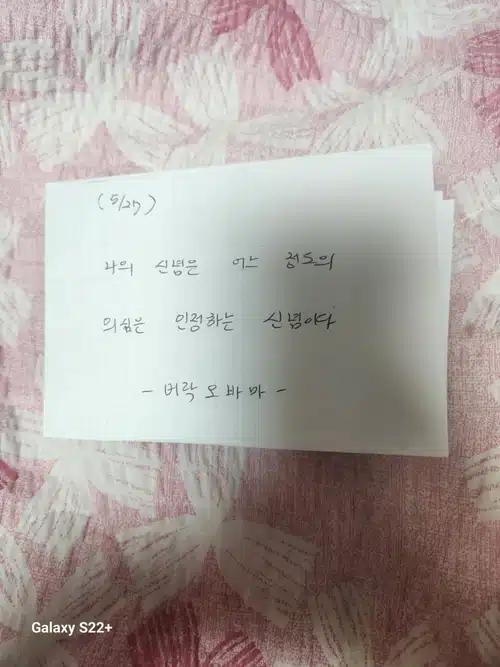 (5/27)
나의 신념은 어느 정도의
의심은 인정하는 신념이다
- 버락 오바마 -
Galaxy S22+